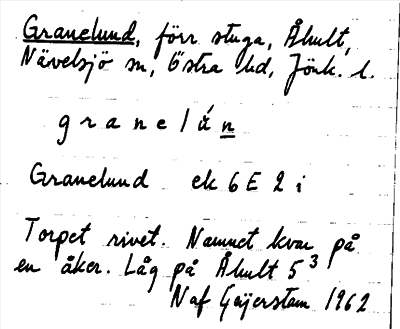 Granelund, förr stuga, Åhult,
Nävelsjö sn, Östra hd, Jönk. l.
granelún
Granelund ek 6E 2 i
Torpet rivet. Namnet kvar på
en åker. Låg på Åhult 5³
N af Geijerstam 1962